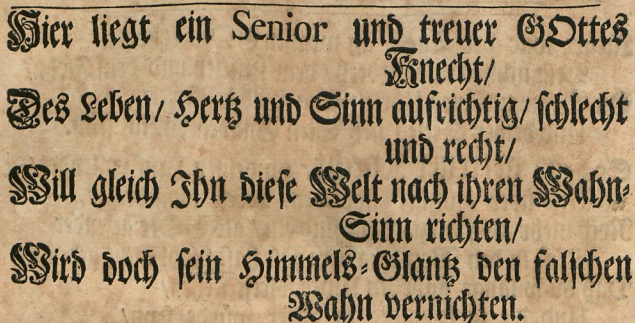 Hier liegt ein Senior und treuer GOttes
Knecht/
Des Leben/ Hertz und Sinn aufrichtig/ schlecht
und recht/
Will gleich Ihn diese Welt nach ihren Wahn-
Sinn richten/
Wird doch sein Himmels-Glantz den falschen
Wahn vernichten.